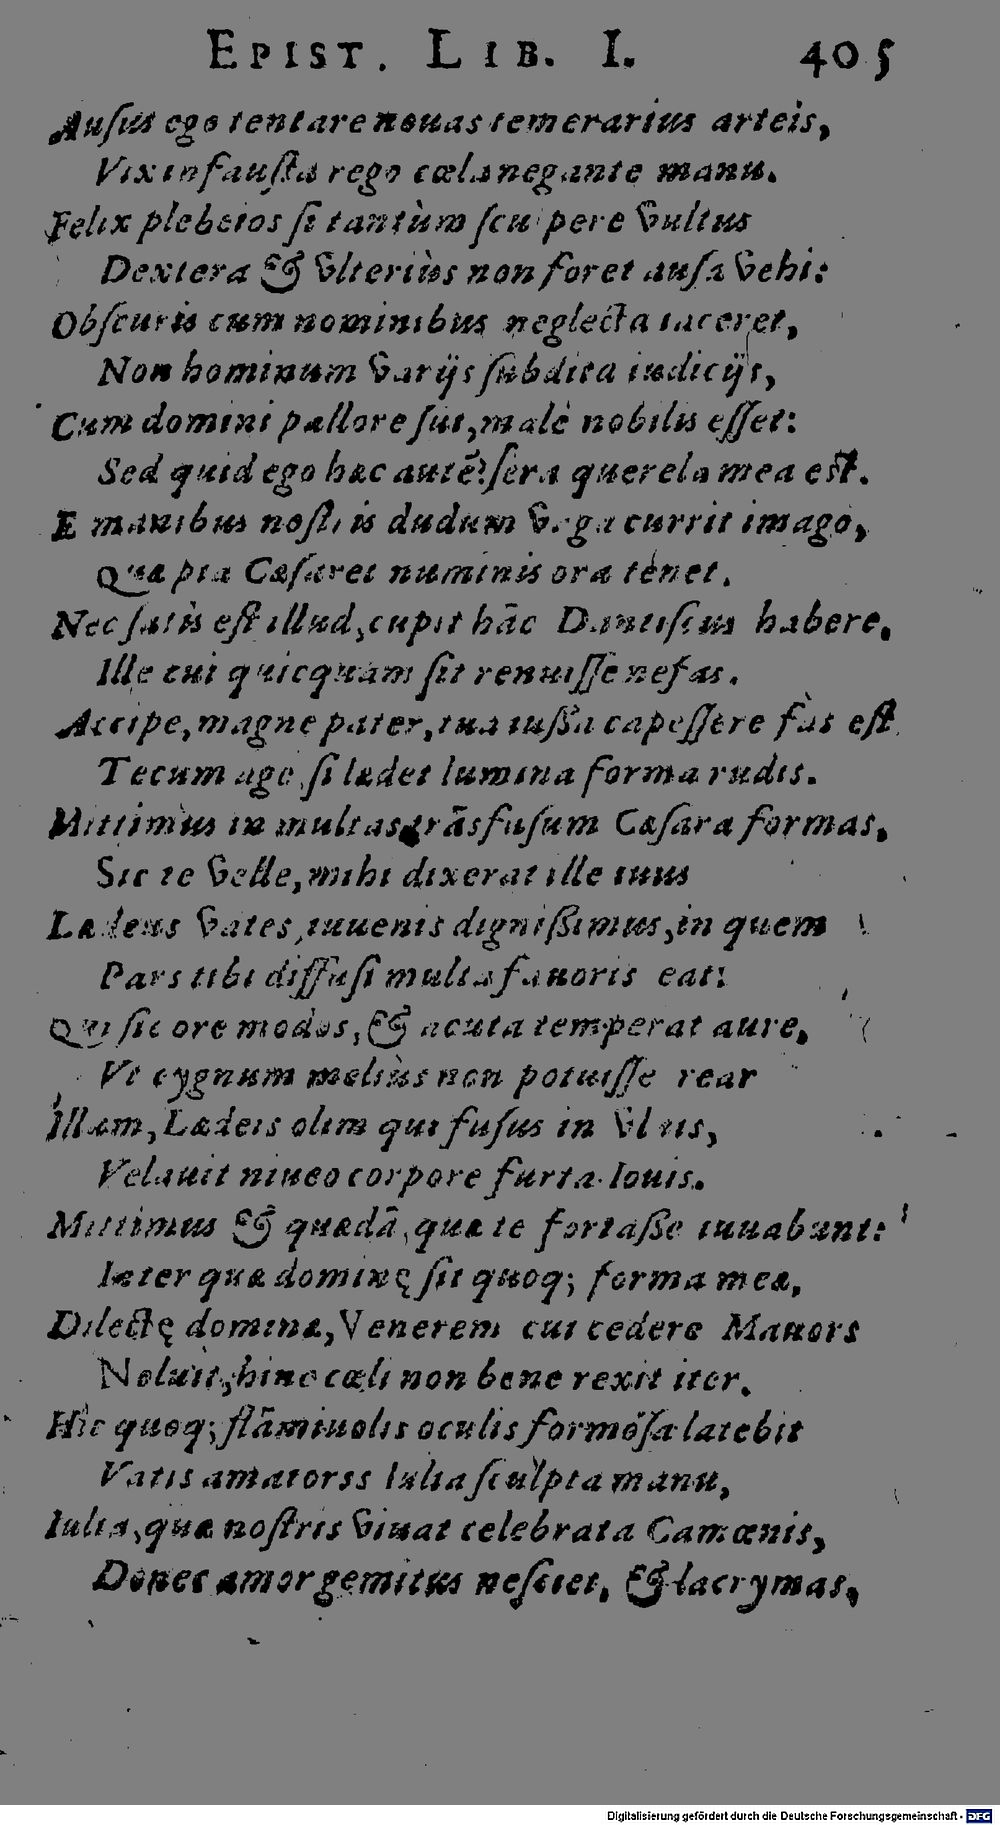 EPIST. LIB. I. 405
Ausus ego tentare nouas temerarius arteis,
Vix infausta rego cœla negante manu.
Felix plebeios si tantùm sculpere vultus
Dextera & vlteriùs non foret ausa vehi:
Obscuris cum nominibus neglecta iaceret,
Non hominum varijs subdita iudicijs,
Cum domini pallore sui, malè nobilis esset:
Sed quid ego hæc autē? sera querela mea est.
E manibus nostris dudum vaga currit imago,
Quæ pia Cæsarei numinis ora tenet.
Nec satis est illud, cupit hāc Dantiscus habere,
Ille cui quicquam sit renuisse nefas.
Accipe, magne pater, tua iussa capessere fàs est
Tecum age, si lædet lumina forma rudis.
Mittimus in multas trāsfusum Cæsara formas,
Sic te velle, mihi dixerat ille tuus
Lædeus vates, iuuenis dignissimus, in quem
Pars tibi diffusi multa fauoris eat:
Qui sic ore modos, & acuta temperat aure,
Vt cygnum meliùs non potuisse rear
Illum, Lædeis olim qui fusus in vlnis,
Velauit niueo corpore furta Iouis.
Mittimus & quædā, quæ te fortasse iuuabunt:
Inter quæ dominę sit quoq; forma meæ,
Dilectę dominæ, Venerem cui cedere Mauors
Noluit, hinc cœli non bene rexit iter.
Hic quoq; flāmiuolis oculis formosa latebit
Vatis amatorss Iulia sculpta manu,
Iulia, quæ nostris viuat celebrata Camœnis,
Donec amor gemitus nesciet, & lacrymas,
Digitalisierung gefördert durch die Deutsche Forschungsgemeinschaft - DFG